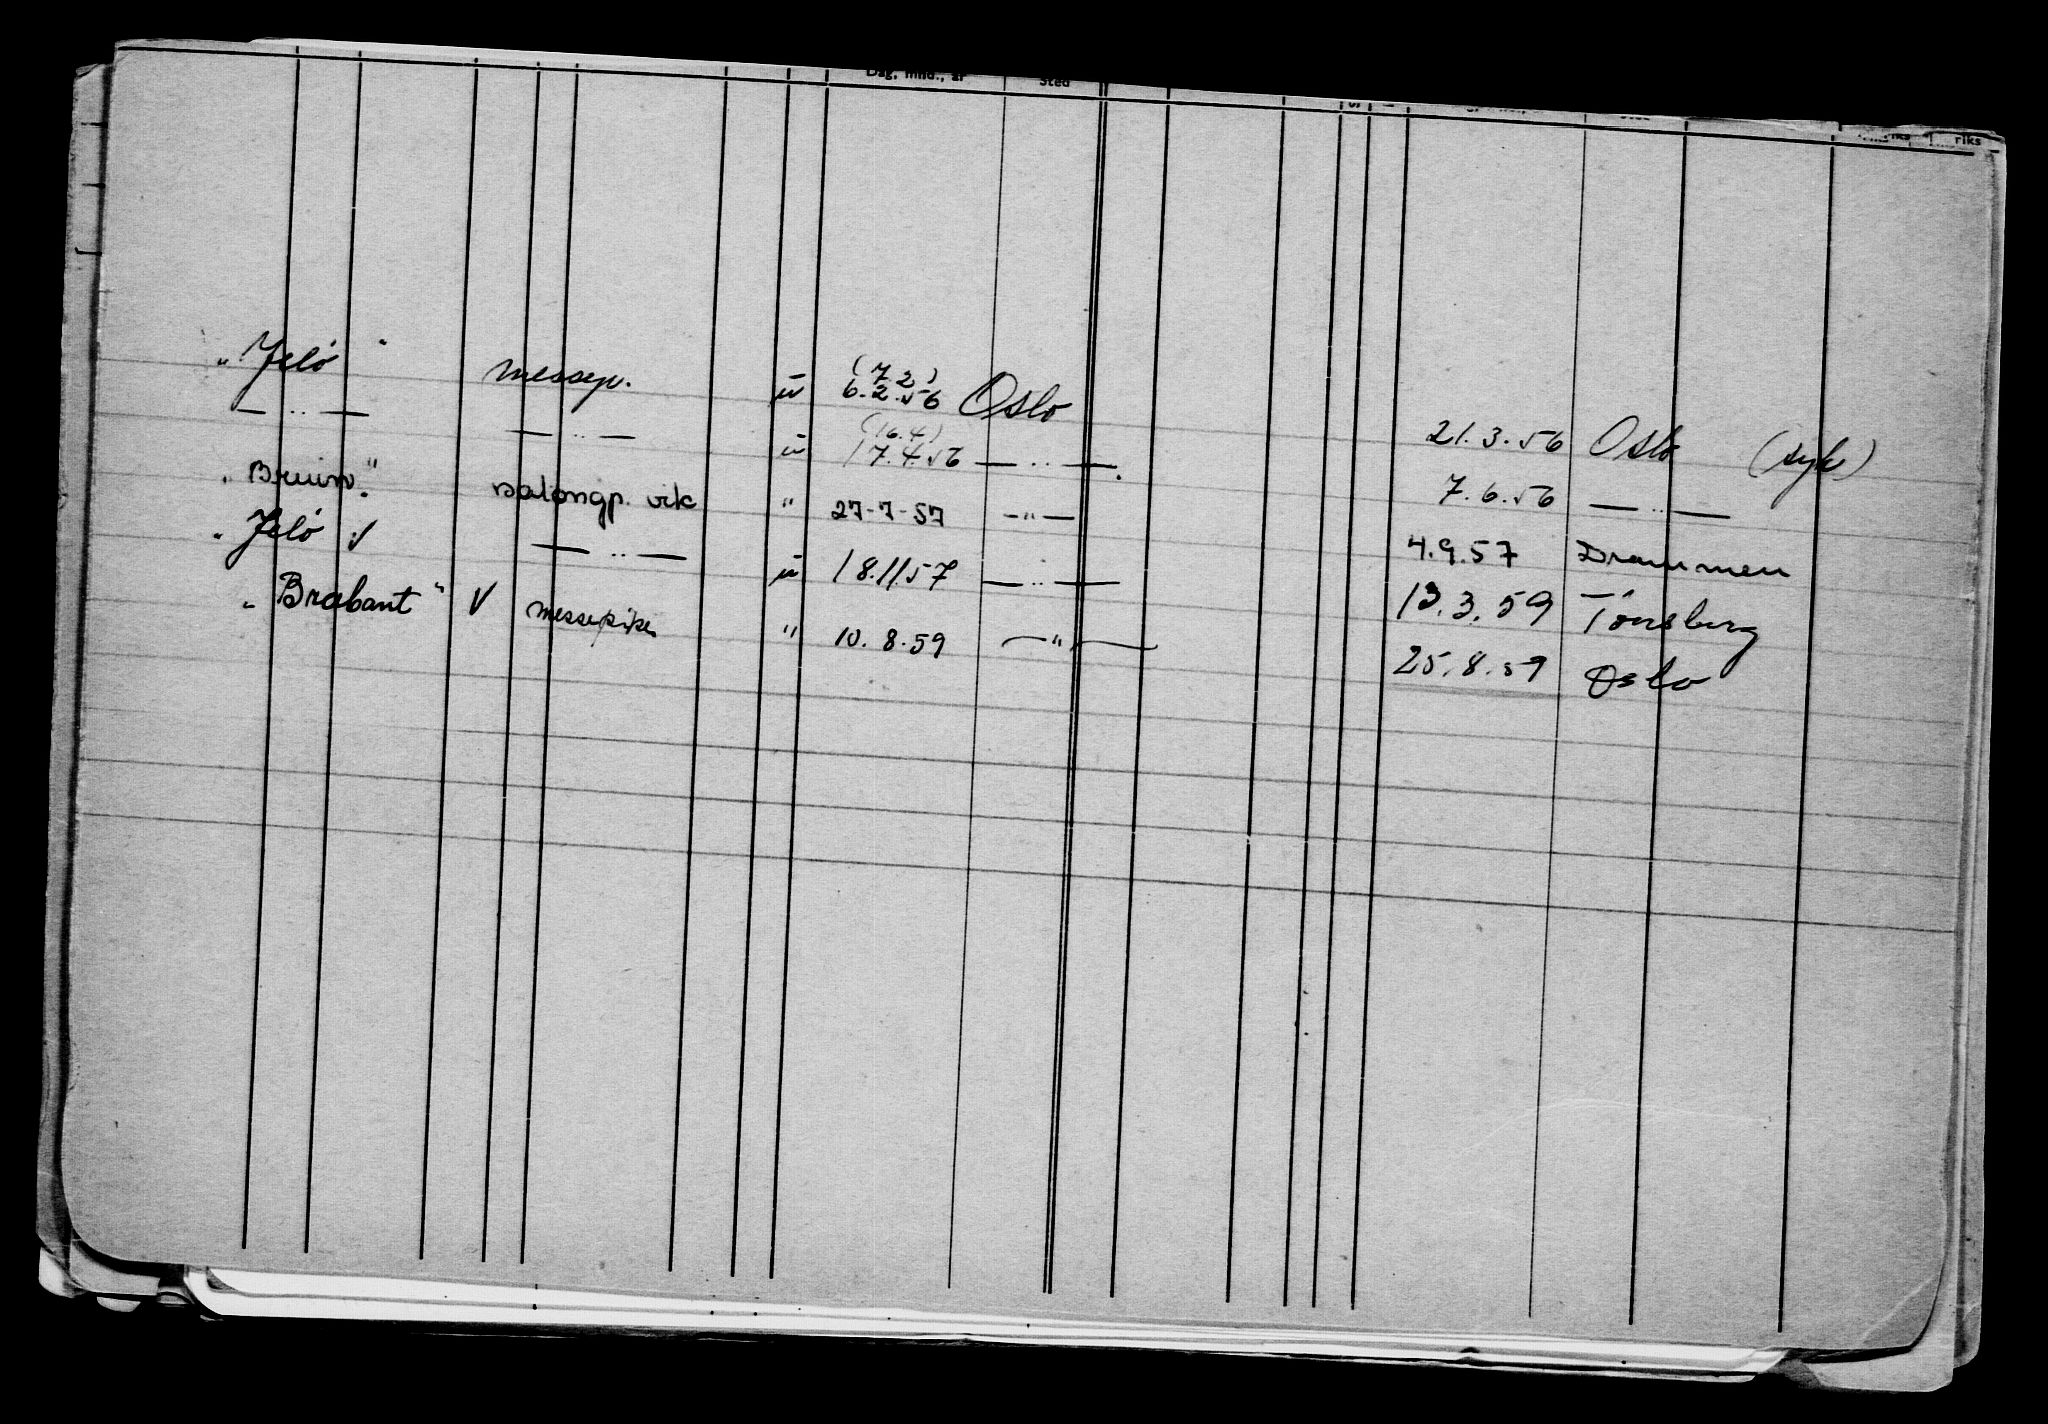 Dag, mnd., år sted riks riks
„Jelö" messep. (7.2) 6.2.56 Oslo 21.3.56 Oslo (syk)
— " — — " — (16.4) 17.4.56 — " — 7.6.56 — " —
„Bruin." salongp. vik " 27-7-57 — " — 4.9.57 Drammen
„Jelö √ — " — 18.11.57 — " — 13.3.59 Tönsberg
„Brabant" √ messepike " 10.8.59 — " — 25.8.59 Oslo